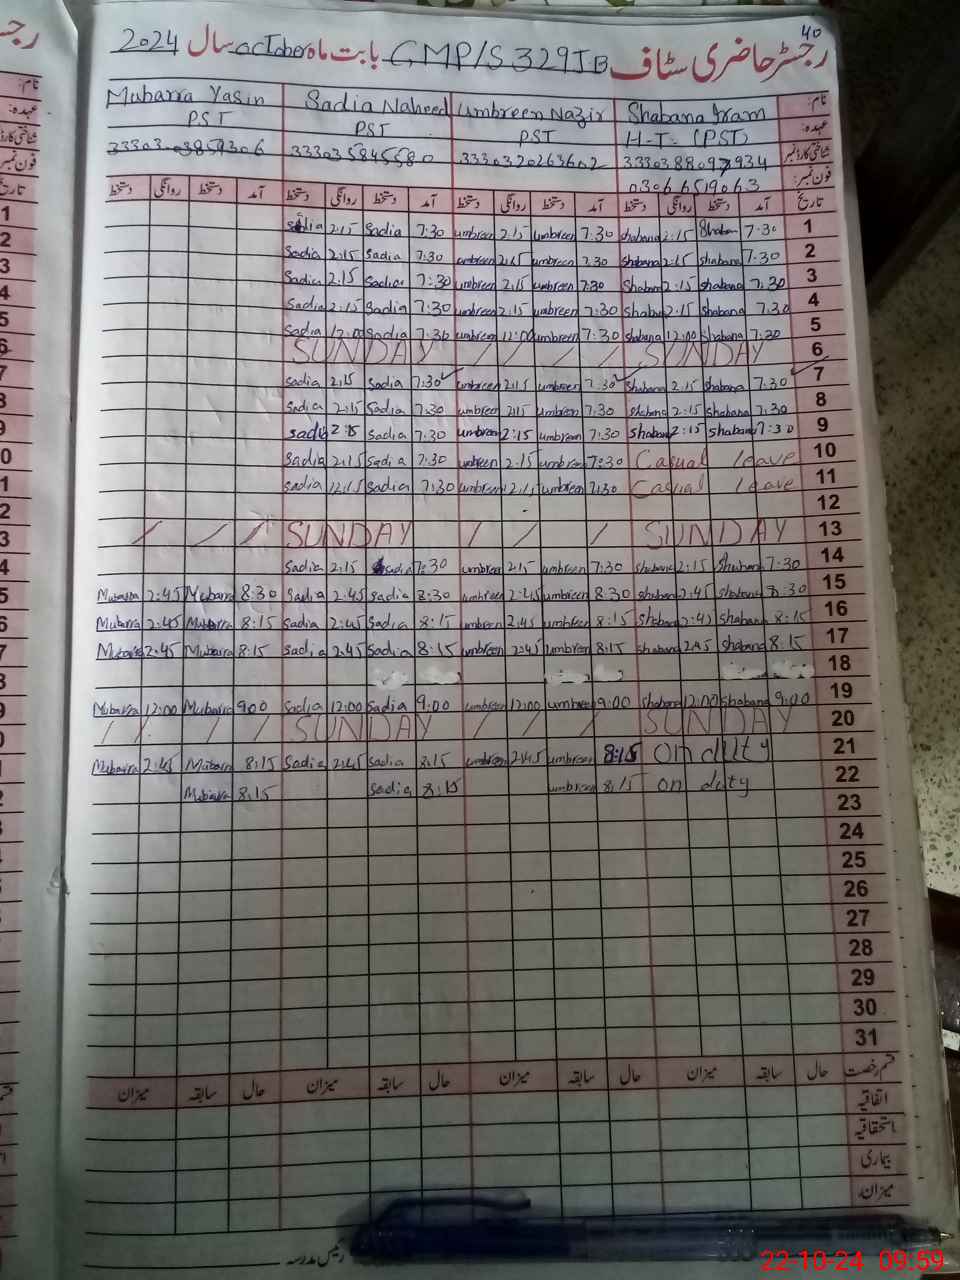 40
رجسٹر حاضری سٹاف GMP/S 329JB بابت ماہ October سال 2024
نام: Shabana Iram Umbreen Nazir Sadia Naheed Mubarra Yasin
عہدہ: H-T (PST) PST PST PST
شناختی کارڈ نمبر 3330320263602 3330358455580
فون نمبر: 03066519063
تاریخ آمد دستخط روانگی دستخط آمد دستخط روانگی دستخط آمد دستخط روانگی دستخط آمد دستخط روانگی دستخط
1 7:30 Shaban 2:15 shabana 7:30 umbreen 2:15 umbreen 7:30 Sadia 2:15 Sadia
2 7:30 shabana 2:15 shabana 7:30 umbreen 2:15 umbreen 7:30 Sadia 2:15 Sadia
3 7:30 shabana 2:15 Shabana 7:30 umbreen 2:15 umbreen 7:30 Sadia 2:15 Sadia
4 7:30 Shabana 2:15 Shabana 7:30 umbreen 2:15 umbreen 7:30 Sadia 2:15 Sadia
5 7:30 Shabana 12:00 shabana 7:30 umbreen 12:00 umbreen 7:30 Sadia 12:00 Sadia
6 SUNDAY / / / / SUNDAY
7 7:30 shabana 2:15 Shabana 7:30 umbreen 2:15 umbreen 7:30 Sadia 2:15 Sadia
8 7:30 shabana 2:15 shabana 7:30 umbreen 2:15 umbreen 7:30 Sadia 2:15 Sadia
9 7:30 shabana 2:15 shabana 7:30 umbreen 2:15 umbreen 7:30 Sadia 2:15 Sadia
10 Casual leave 7:30 umbreen 2:15 umbreen 7:30 Sadia 2:15 Sadia
11 Casual leave 7:30 umbreen 12:15 umbreen 7:30 Sadia 12:15 Sadia
12
13 SUNDAY / / / SUNDAY / / /
14 7:30 Shabana 2:15 Shabana 7:30 umbreen 2:15 umbreen 7:30 Sadia 2:15 Sadia
15 8:30 shabana 2:45 shaban 8:30 umbreen 2:45 umbreen 8:30 sadia 2:45 Sadia 8:30 Mubarra 2:45 Mubarra
16 8:15 shabana 2:45 Shabana 8:15 umbreen 2:45 umbreen 8:15 Sadia 2:45 Sadia 8:15 Mubarra 2:45 Mubarra
17 8:15 Shabana 2:45 shabana 8:15 umbreen 2:45 umbreen 8:15 Sadia 2:45 Sadia 8:15 Mubarra 2:45 Mubarra
18
19 9:00 shabana 12:00 shabana 9:00 umbreen 12:00 umbreen 9:00 Sadia 12:00 Sadia 9:00 Mubarra 12:00 Mubarra
20 SUNDAY / / / SUNDAY / / /
21 On duty 8:15 umbreen 2:45 umbreen 8:15 Sadia 2:45 Sadia 8:15 Mubarra 2:45 Mubarra
22 on duty 8:15 umbreen 8:15 Sadia 8:15 Mubarra
23
24
25
26
27
28
29
30
31
قسم رخصت حال سابقہ میزان حال سابقہ میزان حال سابقہ میزان حال سابقہ میزان
اتفاقیہ
استحقاقیہ
بیماری
میزان:
رئیس مدرسہ
22-10-24 09:59